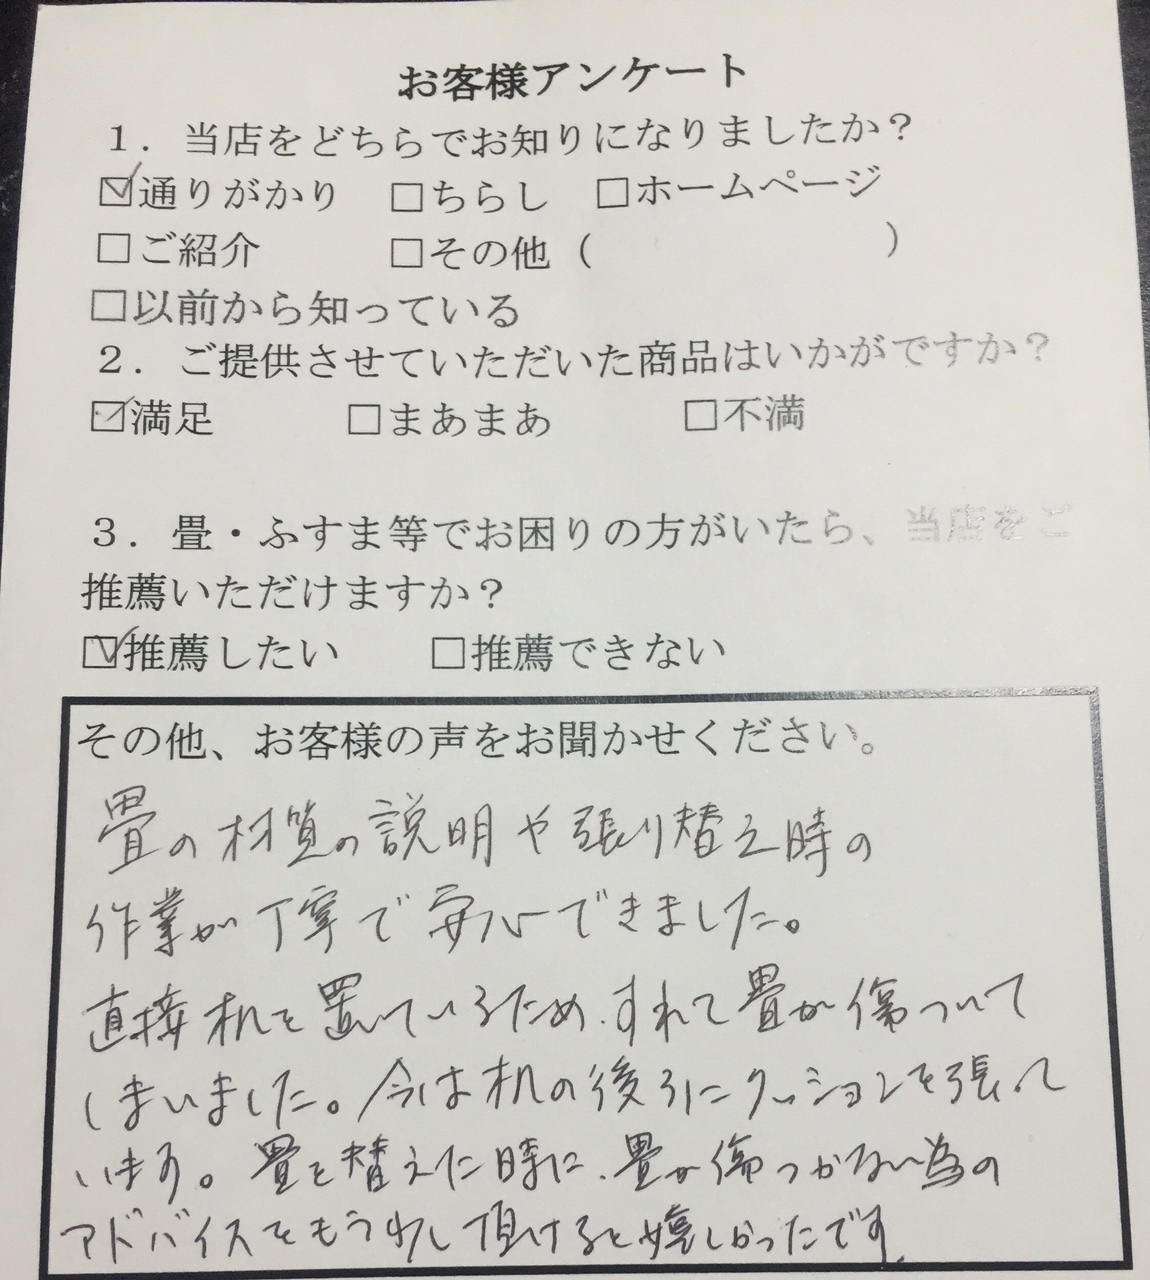 お客様アンケート
１．当店をどちらでお知りになりましたか？
☑通りがかり　□ちらし　□ホームページ
□ご紹介　　　□その他（　　　　　　　）
□以前から知っている
２．ご提供させていただいた商品はいかがですか？
☑満足　　　□まあまあ　　　□不満
３．畳・ふすま等でお困りの方がいたら、当店をご
推薦いただけますか？
☑推薦したい　　□推薦できない
その他、お客様の声をお聞かせください。
畳の材質の説明や張り替え時の
作業が丁寧で安心できました。
直接机を置いているため、すれて畳が傷ついて
しまいました。今は机の後ろにクッションを張って
います。畳を替えた時に、畳が傷つかない為の
アドバイスをもう少し頂けると嬉しかったです。